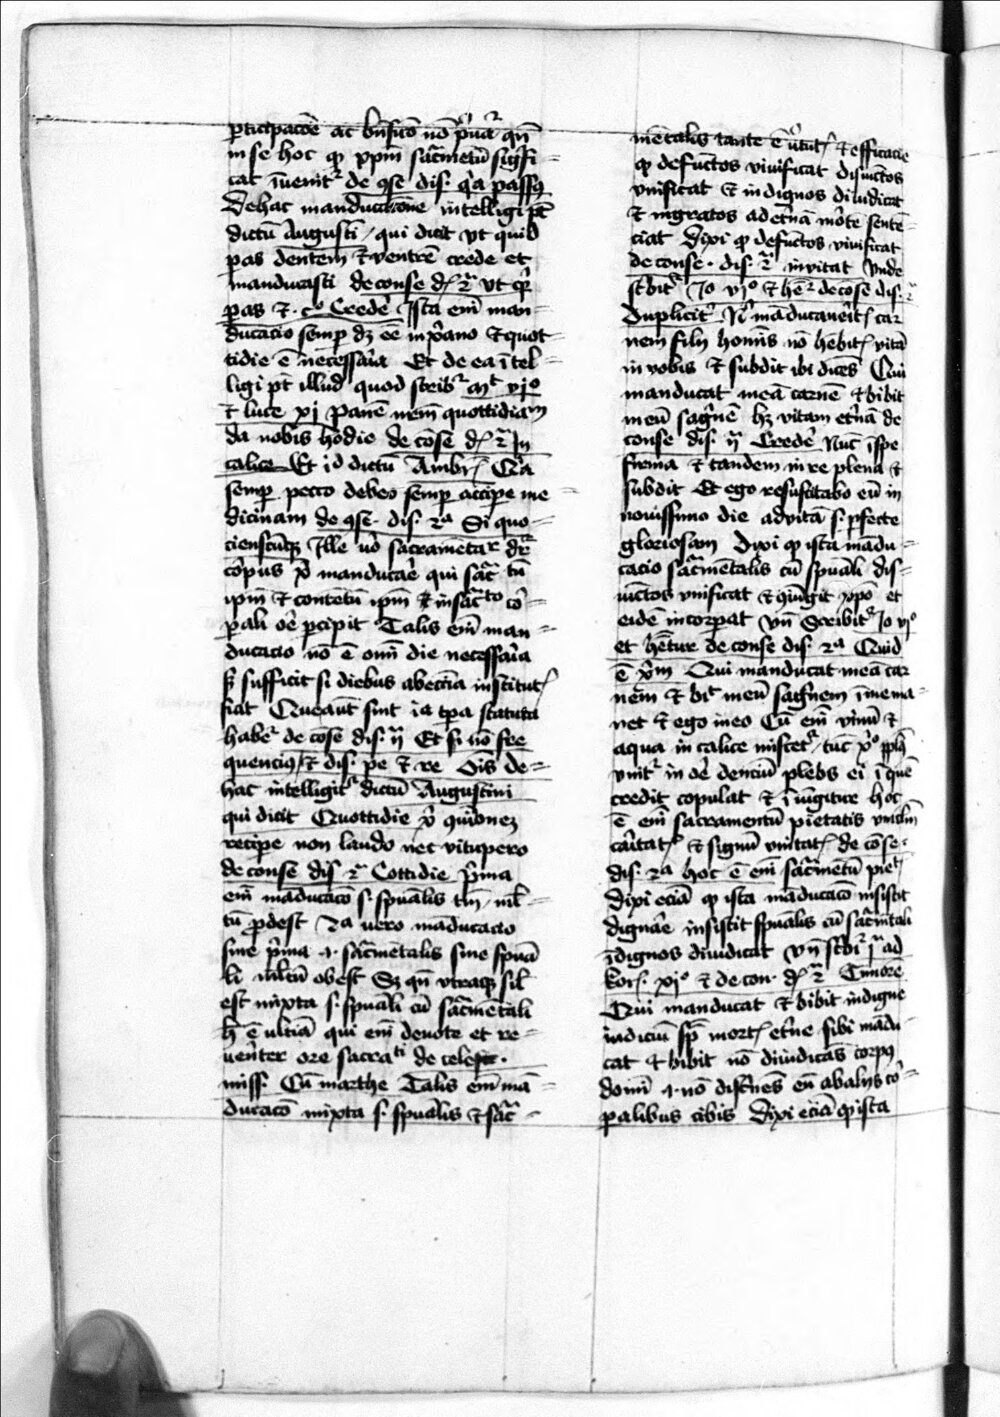 ꝑticipacōe ac bn̄ficō nō pͥuatͬ qn̄
in se hoc qͦ ppm̄ sacͣmetū sigfi=
cat īuenitͬ de ꝯse disͭ qͥa passꝯ
De hac manducacōne intelligi pt̄
dictū Augusti / qui dicit vt quid
paͣs dentem ⁊ ventrē crede et
manducasti de conse dͭ 2ͣ vt qͥ
paͣs ⁊ cͦ Credeͤ Ista em̄ man=
ducatio semꝑ dꝫ eē in xͥano ⁊ quot=
tidie ē necessaͥa Et de ea ītel=
ligi pt̄ illud quod sceibͬ mͭ vjͦ
⁊ luce xj Panē nr̄m quottidianͫ
da nobis hodie de cōse dͭ 2ͣ In
calice Et id dictū Ambrͭ Qͥa
semꝑ pecco debeo semꝑ accipe me
dicinam de ꝯse disͭ 2ͣ Si quo=
cienscūqꝫ Ille vͦ sacramētarͬ drͬ
corpus xͥ manducaͤ qui sacͣ tm̄
ipm̄ ⁊ contētū ipm̄ ⁊ in sacͣto coͬ=
ꝑali oͤe ꝑcipit Talis em̄ man=
ducacio nō ē om̄i die necessaͥa
sꝫ sufficit si diebus ab ecc̄ia institutͭ
fiat Que aūt sint ia tp̄a statuta
habeͬ de cōse disͭ ij Et si nō fre
quencius ⁊ disͭ pe ⁊ re Oīs de=
hac intelligitͬ dictū Augustini
qui dicit Quottidie xͥ ꝯmͥonez
recipe non laudo nec vitupero
de conse disͭ 2ͣ Cottidie Pͥma
em̄ māducacō sͭ spūalis tm̄ ml̄=
tū ꝓdest 2ͣ vero māducacio
sine pͥma ·ı· sacͣmētalis sine spūa
li ml̄tū obest Sꝫ qn̄ vtraqꝫ sil̄
est mixta sͭ spūali cū sacͣmētali
hͨ ē vltiͣ qui em̄ deuote et re=
uent̄er ore sacrati de celeste ·
missͭ Cū marthe Talis em̄ mā=
ducacō mixta sͭ spūalis ⁊ sacͣ=
mētalis tante ē vͥtutͭ ⁊ efficacie
qͦ defūctos viuificat disiūctos
vnificat Et indignos diiudicat
⁊ ingratos ad etͤnā mōte sentē=
ciat Dixi qͦ defūctos viuificat
de conse · disͭ 2ͣ inuitat Vnde
scͥbitͬ Jo vjͦ ⁊ hēͬ de cōse disͭ 2ͣ
Dupliciteͬ Nͥ māducaueͥtͭ car
nem filij homīs nō hēbitͭ vitā
in vobis ⁊ subdit ibi dicēs Qui
manducat meā carnē ⁊ bibit
meū sagͥnē hꝫ vitam etͤnā de
conse disͭ ij Credeͤ Nūc īspe
firma ⁊ tandem in re plena ⁊
subdit Et ego resuscitabo eū in
nouissimo die ad vitā sͭ ꝑfecte
gloriosam Dixi qͦ ista mādu=
cacio sacͣmētalis cū spūali dis=
iūctos vnificat ⁊ ꝯiūgit xpō et
eidē incorpat vn̄ Scribitͬ Jo vjͦ
et hētur de conse disͭ 2ͣ Quid
ē xͥm Qui manducat meā car
nem ⁊ bit meū sagͥnem ī me ma=
net ⁊ ego in eo Cū em̄ vinū ⁊
aqua in calice miscetͬ / tūc xͥͦ ppl̄s
vnitͬ in oͤe denciū plebs ei ī quē
credit copulat ⁊ īūgitur hoc
ē em̄ sacramentū pietatis vinclm̄
caͥtatͭ ⁊ signū vnitatͭ de cōse=
disͭ 2ͣ hoc ē em̄ sacͣmētū pietͭ
Dixi eciā qͦ ista māducacō insistit
dignaͤe insistit spūalis cū sacͣmtali
īdignos diuudicat vn̄ scͥbiͬ jͣ ad
Korͭ xjͦ ⁊ de con· dͭ 2ͣ Timorē
Qui manducat ⁊ bibit indigne
iudiciū sꝫ mortͭ etͤne sibi mādu=
cat ⁊ bibit nō diiudicās corpꝯ
domī ·ı· nō discͤnēs eū ab alijs coͬ=
ꝑalibus cibis Dixi eciā qͦ ista